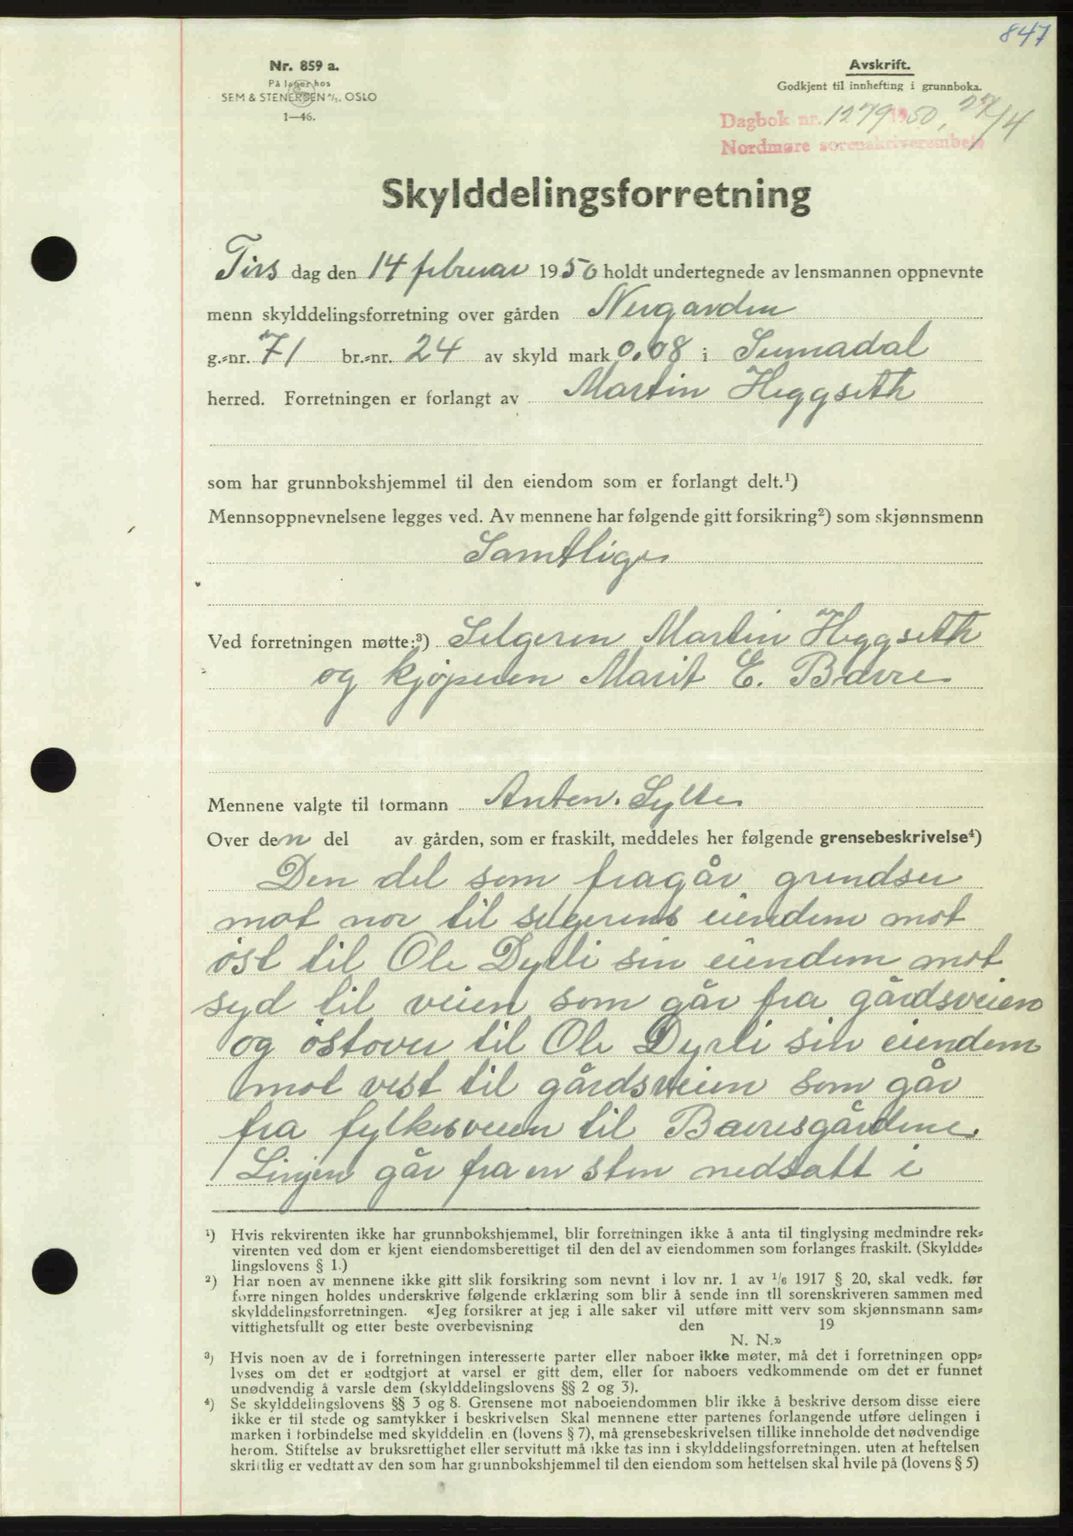 847
Nr. 859 a.
På lager hos
SEM & STENERSEN A/S. OSLO
1—46.
Avskrift.
Godkjent til innhefting i grunnboka.
Dagbok nr. 1279 1950, 27/4
Nordmøre sorenskriverembete
Skylddelingsforretning
Tirs dag den 14 februar 1950 holdt undertegnede av lensmannen oppnevnte
menn skylddelingsforretning over gården Nergarden
g.=nr. 71 br.=nr. 24 av skyld mark 0.08 i Surnadal
herred. Forretningen er forlangt av Martin Heggseth
som har grunnbokshjemmel til den eiendom som er forlangt delt.¹)
Mennsoppnevnelsene legges ved. Av mennene har følgende gitt forsikring²) som skjønnsmenn
Samtlige
Ved forretningen møtte:³) Selgeren Martin Heggseth
og kjøperen Marit E. Bævre
Mennene valgte til formann Anton. Sylte
Over den del av gården, som er fraskilt, meddeles her følgende grensebeskrivelse⁴)
Den del som fragår grendser
mot nor til selgerens eiendem mot
øst til Ole Dyrli sin eiendem mot
syd til veien som går fra gårdsveien
og østover til Ole Dyrli sin eiendem
mot vest til gårdsveien som går
fra fylkesveien til Bævresgårdene.
Linjen går fra en sten nedsatt i
¹) Hvis rekvirenten ikke har grunnbokshjemmel, blir forretningen ikke å anta til tinglysing medmindre rek=
virenten ved dom er kjent eiendomsberettiget til den del av eiendommen som forlanges fraskilt. (Skyldde=
lingslovens § 1.)
²) Har noen av mennene ikke gitt slik forsikring som nevnt i lov nr. 1 av 1/6 1917 § 20, skal vedk. før
forretningen holdes underskrive følgende erklæring som blir å sende inn til sorenskriveren sammen med
skylddelingsforretningen. «Jeg forsikrer at jeg i alle saker vil utføre mitt verv som skjønnsmann sam=
vittighetsfullt og etter beste overbevisning den 19
N. N.»
³) Hvis noen av de i forretningen interesserte parter eller naboer ikke møter, må det i forretningen opp=
lyses om det er godtgjort at varsel er gitt dem, eller for naboers vedkommende om det er funnet
unødvendig å varsle dem (skylddelingslovens §§ 2 og 3).
⁴) Se skylddelingslovens §§ 3 og 8. Grensene mot naboeiendommen blir ikke å beskrive dersom disse eiere
ikke er til stede og samtykker i beskrivelsen Skal mennene etter partenes forlangende utføre delingen i
marken i forbindelse med skylddelingen (lovens § 7), må grensebeskrivelsen tillike inneholde det nødvendige
herom. Stiftelse av bruksrettighet eller servitutt må ikke tas inn i skylddelingsforretningen. uten at heftelsen
skriftlig er vedtatt av den som har grunnbokshjemmel til den eiendom som heftelsen skal hvile på (lovens § 5)